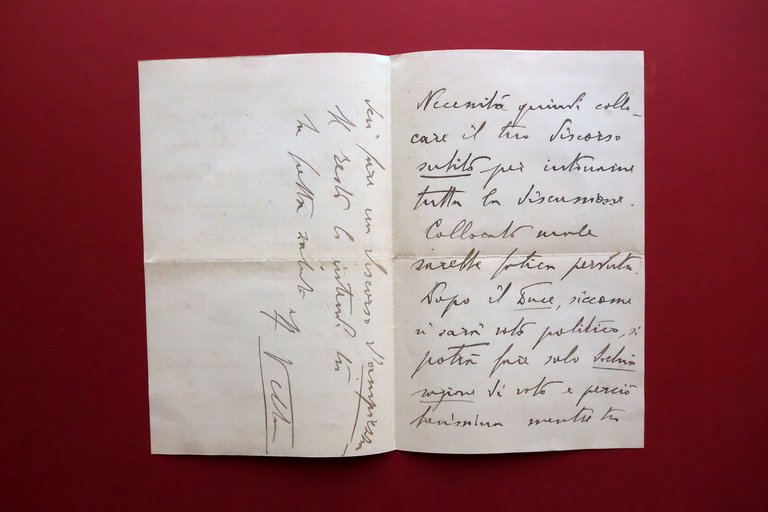 Necessità quindi collo-
care il tuo discorso
subito per intonarne
tutta la discussione.
Collocato male
sarebbe fatica perduta.
Dopo il Duce, siccome
vi sarà voto politico, si
potrà fare solo
ragione di voto e perciò
brevissima mentre tu
devi fare un discorso d'ampiezza
Il resto lo intendi tu
In fretta saluti